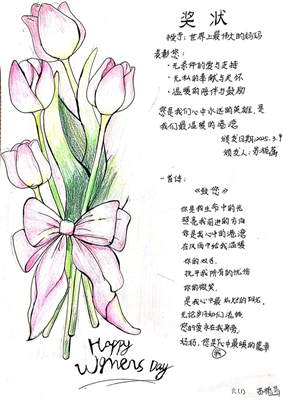 奖状
授予：世界上最伟大的妈妈
表彰您：
·无条件的爱与支持
·无私的奉献与关怀
·温暖的陪伴与鼓励
您是我们心中永远的英雄，是
我们最温暖的港湾
颁发日期：2025.3.9
颁发人：苏
一首诗：
《致您》
你是我生命中的光
照亮我前进的方向
你是我心中的港湾
在风雨中给我温暖
你的双手，
抚平我所有的忧伤
你的微笑，
是我心中最
无论岁月如何流转，
您的爱永在我身旁，
妈妈，您是我心中最暖的篇章
Happy
Women's Day
六(1) 苏